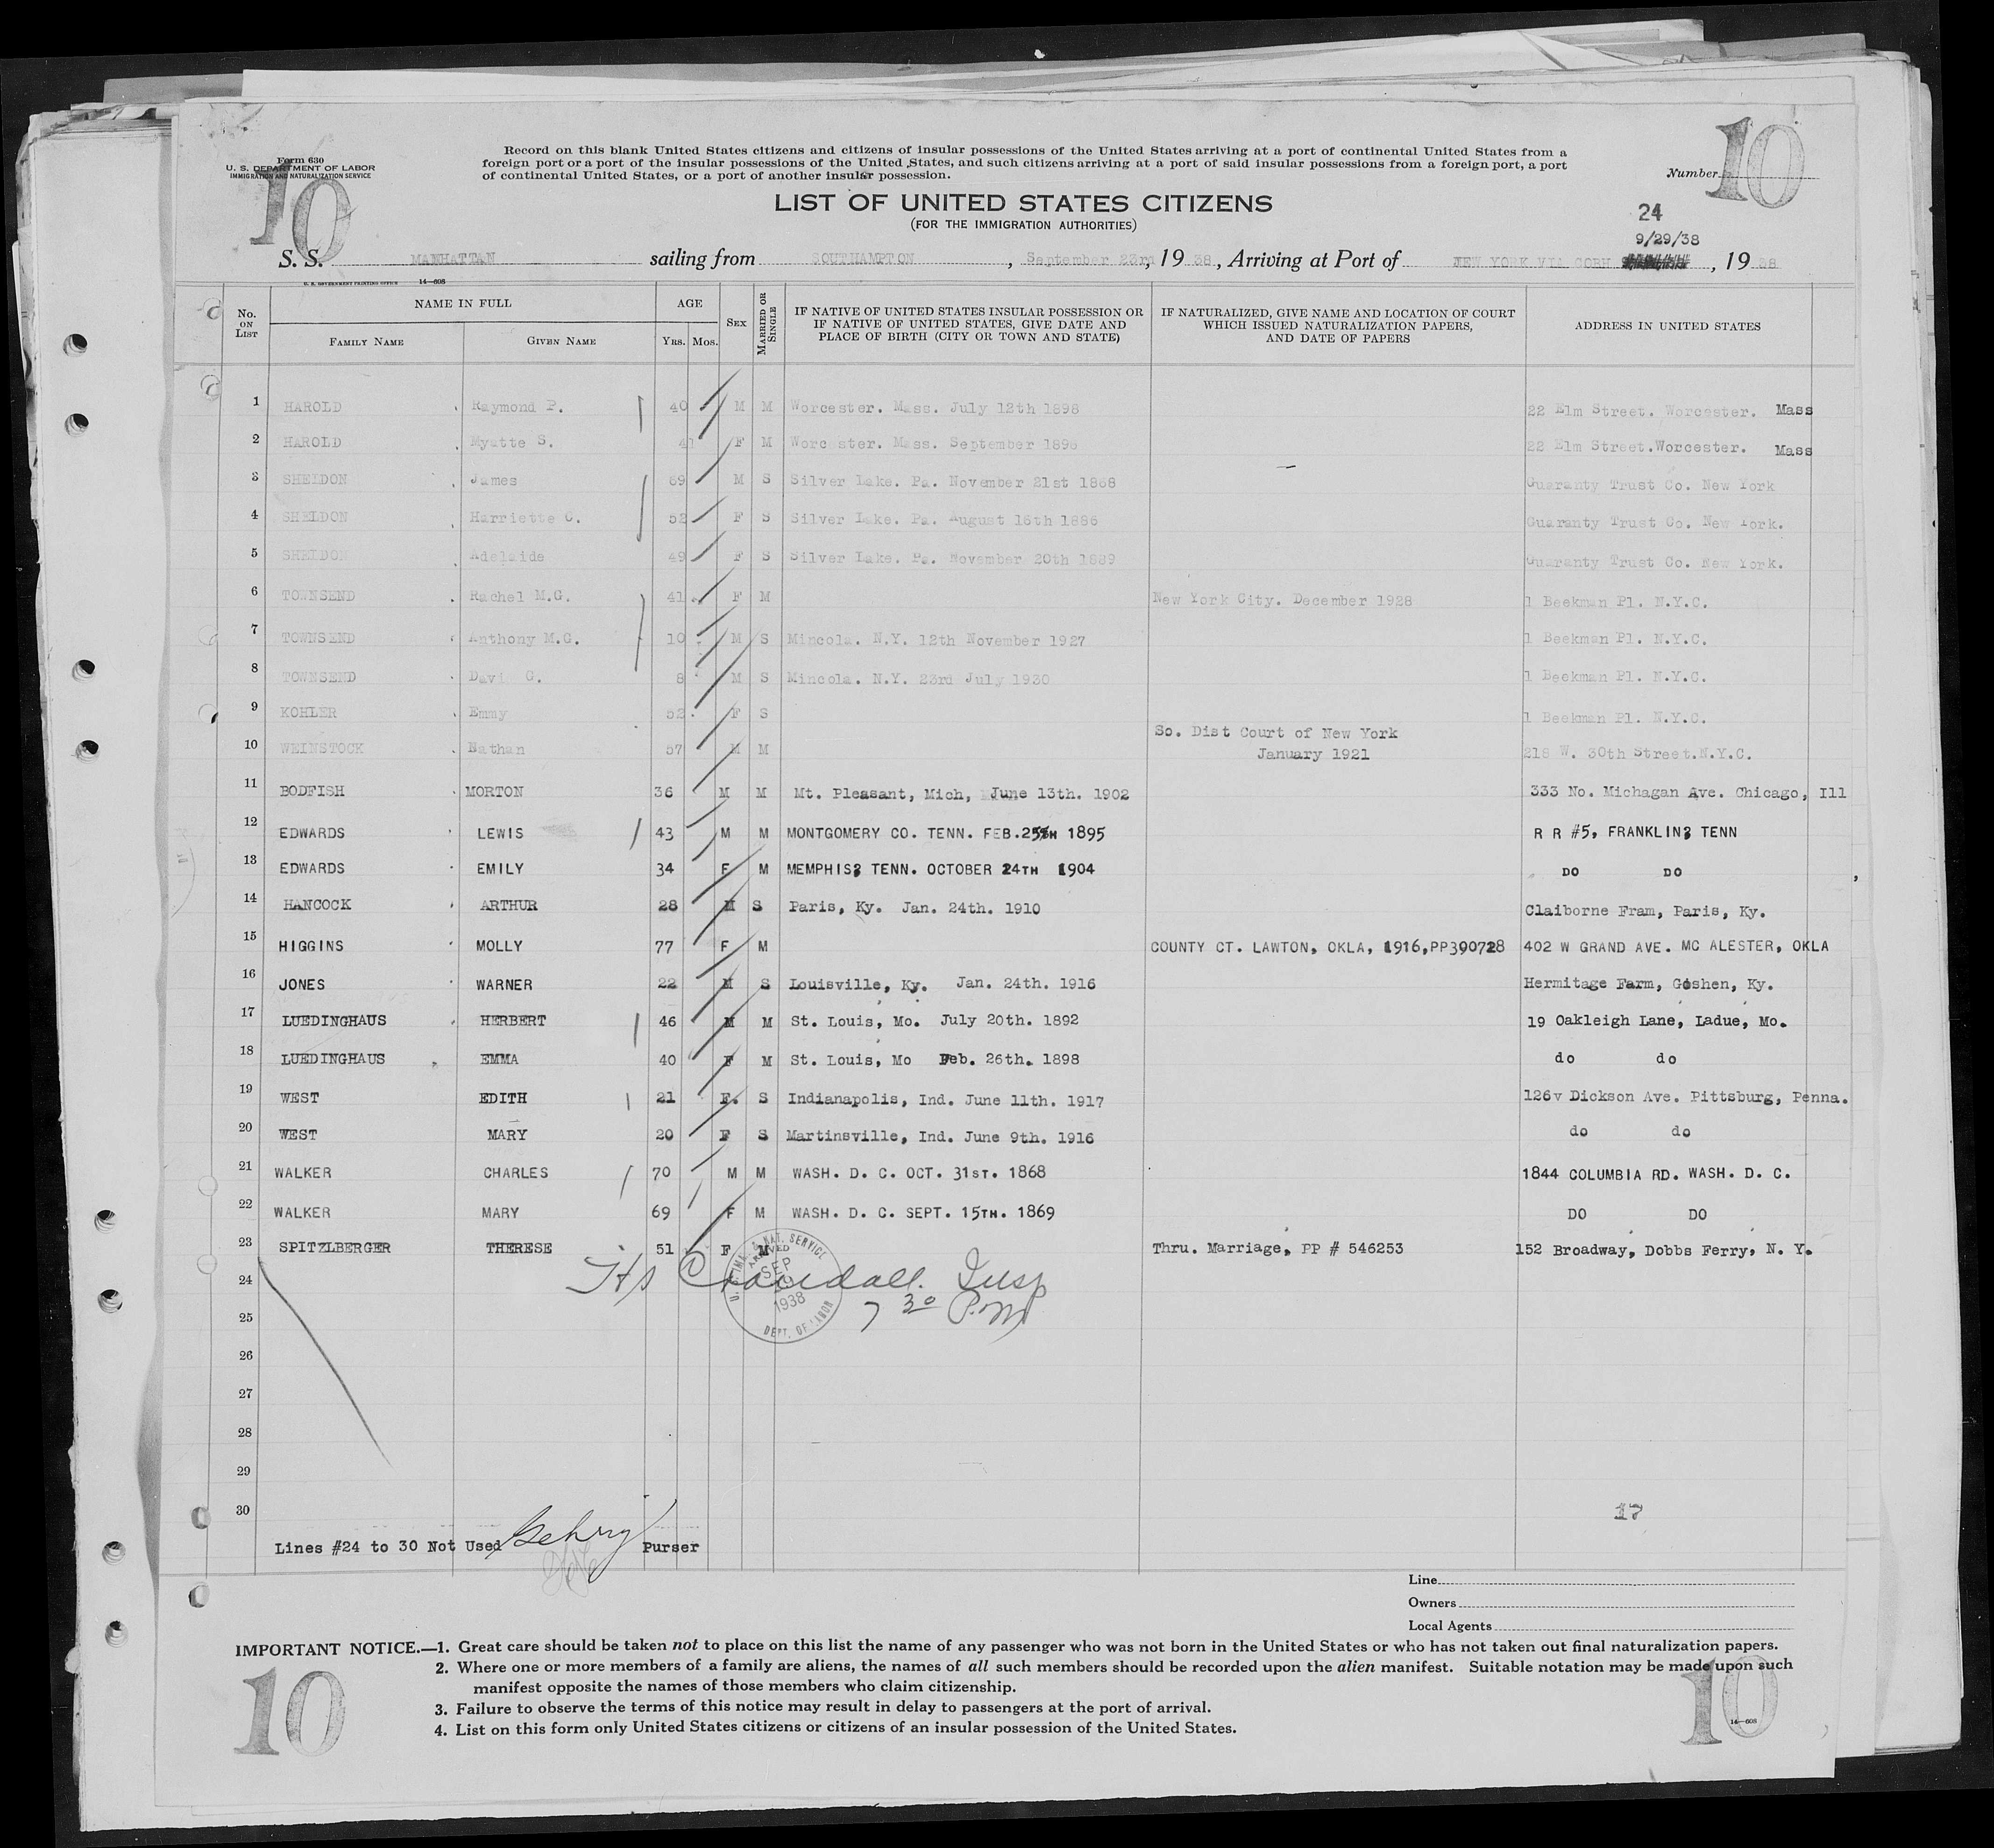 10
10
Form 630
U. S. DEPARTMENT OF LABOR
IMMIGRATION AND NATURALIZATION SERVICE
Record on this blank United States citizens and citizens of insular possessions of the United States arriving at a port of continental United States from a
foreign port or a port of the insular possessions of the United States, and such citizens arriving at a port of said insular possessions from a foreign port, a port
of continental United States, or a port of another insular possession.
Number
LIST OF UNITED STATES CITIZENS
(FOR THE IMMIGRATION AUTHORITIES)
24
9/29/38
S. S. MANHATTAN sailing from SOUTHAMPTON, September 23rd, 19 38, Arriving at Port of NEW YORK VIA COBH, 19 38
U. S. GOVERNMENT PRINTING OFFICE 14—608
No. ON LIST NAME IN FULL AGE SEX MARRIED OR SINGLE IF NATIVE OF UNITED STATES INSULAR POSSESSION OR IF NATIVE OF UNITED STATES, GIVE DATE AND PLACE OF BIRTH (CITY OR TOWN AND STATE) IF NATURALIZED, GIVE NAME AND LOCATION OF COURT WHICH ISSUED NATURALIZATION PAPERS, AND DATE OF PAPERS ADDRESS IN UNITED STATES
FAMILY NAME GIVEN NAME YRS. MOS.
1 HAROLD Raymond P. 40 M M Worcester. Mass. July 12th 1898 22 Elm Street. Worcester. Mass
2 HAROLD Myatte S. 41 F M Worcester. Mass. September 22 Elm Street.Worcester. Mass
3 SHELDON James 69 M S Silver Lake. Pa. November 21st 1868 Guaranty Trust Co. New York
4 SHELDON Harriette C. 52 F S Silver Lake. Pa. August 16th 1886 Guaranty Trust Co. New York.
5 SHELDON Adelaide 49 F S Silver Lake. Pa. November 20th 1889 Guaranty Trust Co. New York.
6 TOWNSEND Rachel M.G. 41 F M New York City. December 1928 1 Beekman Pl. N.Y.C.
7 TOWNSEND Anthony M.G. 10 M S Mincola. N.Y. 12th November 1927 1 Beekman Pl. N.Y.C.
8 TOWNSEND Davi G. 8 M S Mincola. N.Y. 23rd July 1930 1 Beekman Pl. N.Y.C.
9 KOHLER Emmy 52 F S 1 Beekman Pl. N.Y.C.
10 WEINSTOCK Nathan 57 M M So. Dist Court of New York January 1921 218 W. 30th Street.N.Y.C.
11 BODFISH MORTON 36 M M Mt. Pleasant, Mich, June 13th. 1902 333 No. Michagan Ave. Chicago, Ill
12 EDWARDS LEWIS 43 M M MONTGOMERY CO. TENN. FEB.25TH 1895 R R #5, FRANKLIN? TENN
13 EDWARDS EMILY 34 F M MEMPHIS? TENN. OCTOBER 24TH 1904 DO DO
14 HANCOCK ARTHUR 28 M S Paris, Ky. Jan. 24th. 1910 Claiborne Fram, Paris, Ky.
15 HIGGINS MOLLY 77 F M COUNTY CT. LAWTON, OKLA, 1916,PP390728 402 W GRAND AVE. MC ALESTER, OKLA
16 JONES WARNER 22 M S Louisville, Ky. Jan. 24th. 1916 Hermitage Farm, Goshen, Ky.
17 LUEDINGHAUS HERBERT 46 M M St. Louis, Mo. July 20th. 1892 19 Oakleigh Lane, Ladue, Mo.
18 LUEDINGHAUS EMMA 40 F M St. Louis, Mo Feb. 26th. 1898 do do
19 WEST EDITH 21 F. S Indianapolis, Ind. June 11th. 1917 126v Dickson Ave. Pittsburg, Penna.
20 WEST MARY 20 F S Martinsville, Ind. June 9th. 1916 do do
21 WALKER CHARLES 70 M M WASH. D. C. OCT. 31ST. 1868 1844 COLUMBIA RD. WASH. D. C.
22 WALKER MARY 69 F M WASH. D. C. SEPT. 15TH. 1869 DO DO
23 SPITZLBERGER THERESE 51 F M Thru. Marriage, PP # 546253 152 Broadway, Dobbs Ferry, N. Y.
U. S. IMM. & NAT. SERVICE ARRIVED SEP 29 1938 DEPT. OF LABOR
24 Crandall. Insp
25 7 30 P.M
26
27
28
29
30
17
Lines #24 to 30 Not Used Purser
Line
Owners
Local Agents
IMPORTANT NOTICE.—1. Great care should be taken not to place on this list the name of any passenger who was not born in the United States or who has not taken out final naturalization papers.
2. Where one or more members of a family are aliens, the names of all such members should be recorded upon the alien manifest. Suitable notation may be made upon such
manifest opposite the names of those members who claim citizenship.
3. Failure to observe the terms of this notice may result in delay to passengers at the port of arrival.
4. List on this form only United States citizens or citizens of an insular possession of the United States.
10
10
14—608